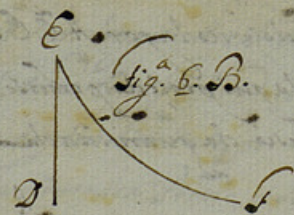 C
Fig.ª 6. B.
D
F